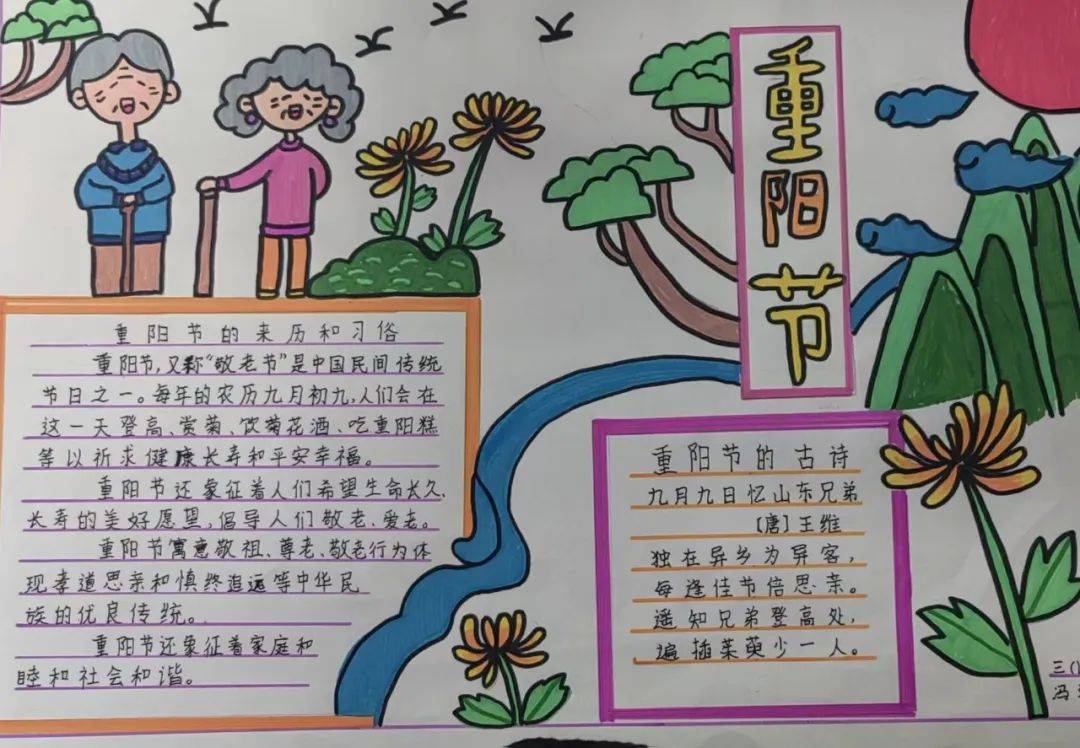 重阳节
重阳节的来历和习俗
重阳节,又称“敬老节”是中国民间传统
节日之一。每年的农历九月初九,人们会在
这一天登高、赏菊、饮菊花酒、吃重阳糕
等以祈求健康长寿和平安幸福。
重阳节还象征着人们希望生命长久、
长寿的美好愿望,倡导人们敬老、爱老。
重阳节寓意敬祖、尊老、敬老行为体
现孝道思亲和慎终追远等中华民
族的优良传统。
重阳节还象征着家庭和
睦和社会和谐。
重阳节的古诗
九月九日忆山东兄弟
[唐]王维
独在异乡为异客,
每逢佳节倍思亲。
遥知兄弟登高处,
遍插茱萸少一人。
三(
冯